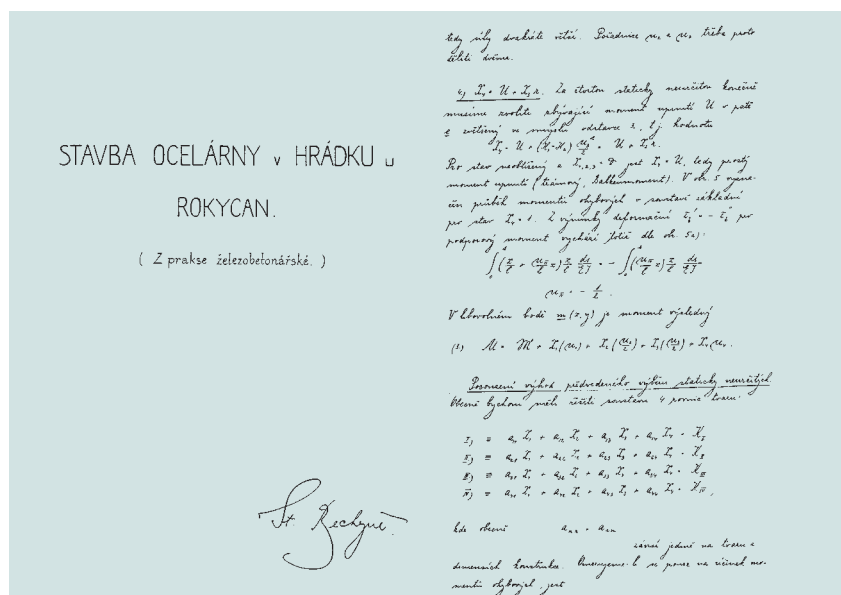 STAVBA OCELÁRNY v HRÁDKU u
ROKYCAN.
( Z prakse železobetonářské. )
St. Bechyně.
tedy síly dvakráte větší. Pořadnice u₂ a u₃ třeba proto
děliti dvěma.
4) X₄ = U + X₃ r. Za čtvrtou staticky neurčitou konečně
musíme zvoliti zbývající moment upnutí U v patě
zvětšený ve smyslu odstavce 3, t.j. hodnotu
Pro stav nezatížený a X₁,₂,₃ = 0 jest X₄ = U, tedy prostý
moment upnutí (trámový, Balkenmoment). V obr. 5 vyzna-
čen průběh momentů ohybových v soustavě základní
pro stav X₄ = 1. Z výminky deformační pro
podporový moment vychází totiž dle obr. 5a):
V libovolném bodě m (x, y) je moment výsledný
(3) M = 𝔐 + X₁(u₁) + X₂(u₂/2) + X₃(u₃/2) + X₄ u₄.
Posouzení výhod předvedeného výběru staticky neurčitých.
Obecně bychom měli řešiti soustavu 4 rovnic tvaru:
I) ≡ a₁₁ X₁ + a₁₂ X₂ + a₁₃ X₃ + a₁₄ X₄ = K_I
II) ≡ a₂₁ X₁ + a₂₂ X₂ + a₂₃ X₃ + a₂₄ X₄ = K_II
III) ≡ a₃₁ X₁ + a₃₂ X₂ + a₃₃ X₃ + a₃₄ X₄ = K_III
IV) ≡ a₄₁ X₁ + a₄₂ X₂ + a₄₃ X₃ + a₄₄ X₄ = K_IV,
kde obecně
závisí jedině na tvaru a
dimensích konstrukce. Omezujeme-li se pouze na účinek mo-
mentů ohybových, jest